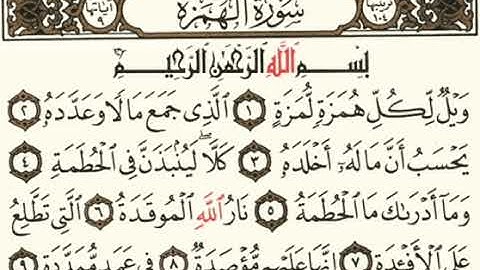 ترتيبها ١٠٤ سُورَةُ الْهُمَزَةِ آياتها ٩
بِسْمِ اللَّهِ الرَّحْمَٰنِ الرَّحِيمِ
وَيْلٌ لِّكُلِّ هُمَزَةٍ لُّمَزَةٍ ١ الَّذِي جَمَعَ مَالًا وَعَدَّدَهُ ٢
يَحْسَبُ أَنَّ مَالَهُۥٓ أَخْلَدَهُۥ ٣ كَلَّا ۖ لَيُنۢبَذَنَّ فِي الْحُطَمَةِ ٤
وَمَآ أَدْرَىٰكَ مَا الْحُطَمَةُ ٥ نَارُ اللَّهِ الْمُوقَدَةُ ٦ الَّتِي تَطَّلِعُ
عَلَى الْأَفْـِٔدَةِ ٧ إِنَّهَا عَلَيْهِم مُّؤْصَدَةٌ ٨ فِي عَمَدٍ مُّمَدَّدَةٍ ٩